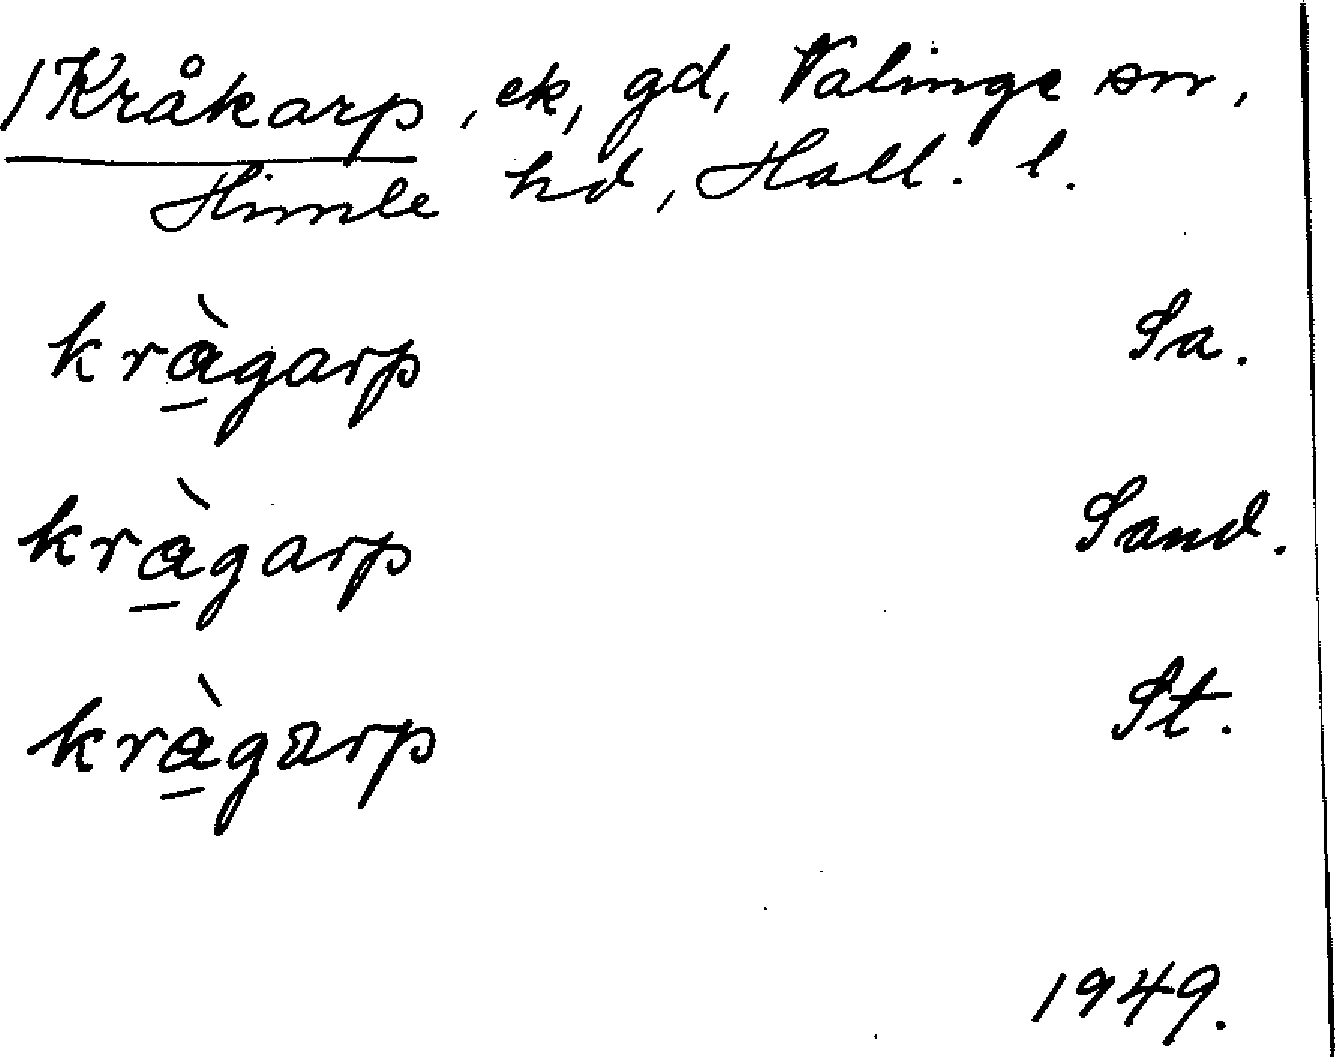 /Kråkarp, ek, gd, Valinge sn,
Himle hd, Hall. l.
kràgarp Sa.
kràgarp Sand.
kràgarp St.
1949.